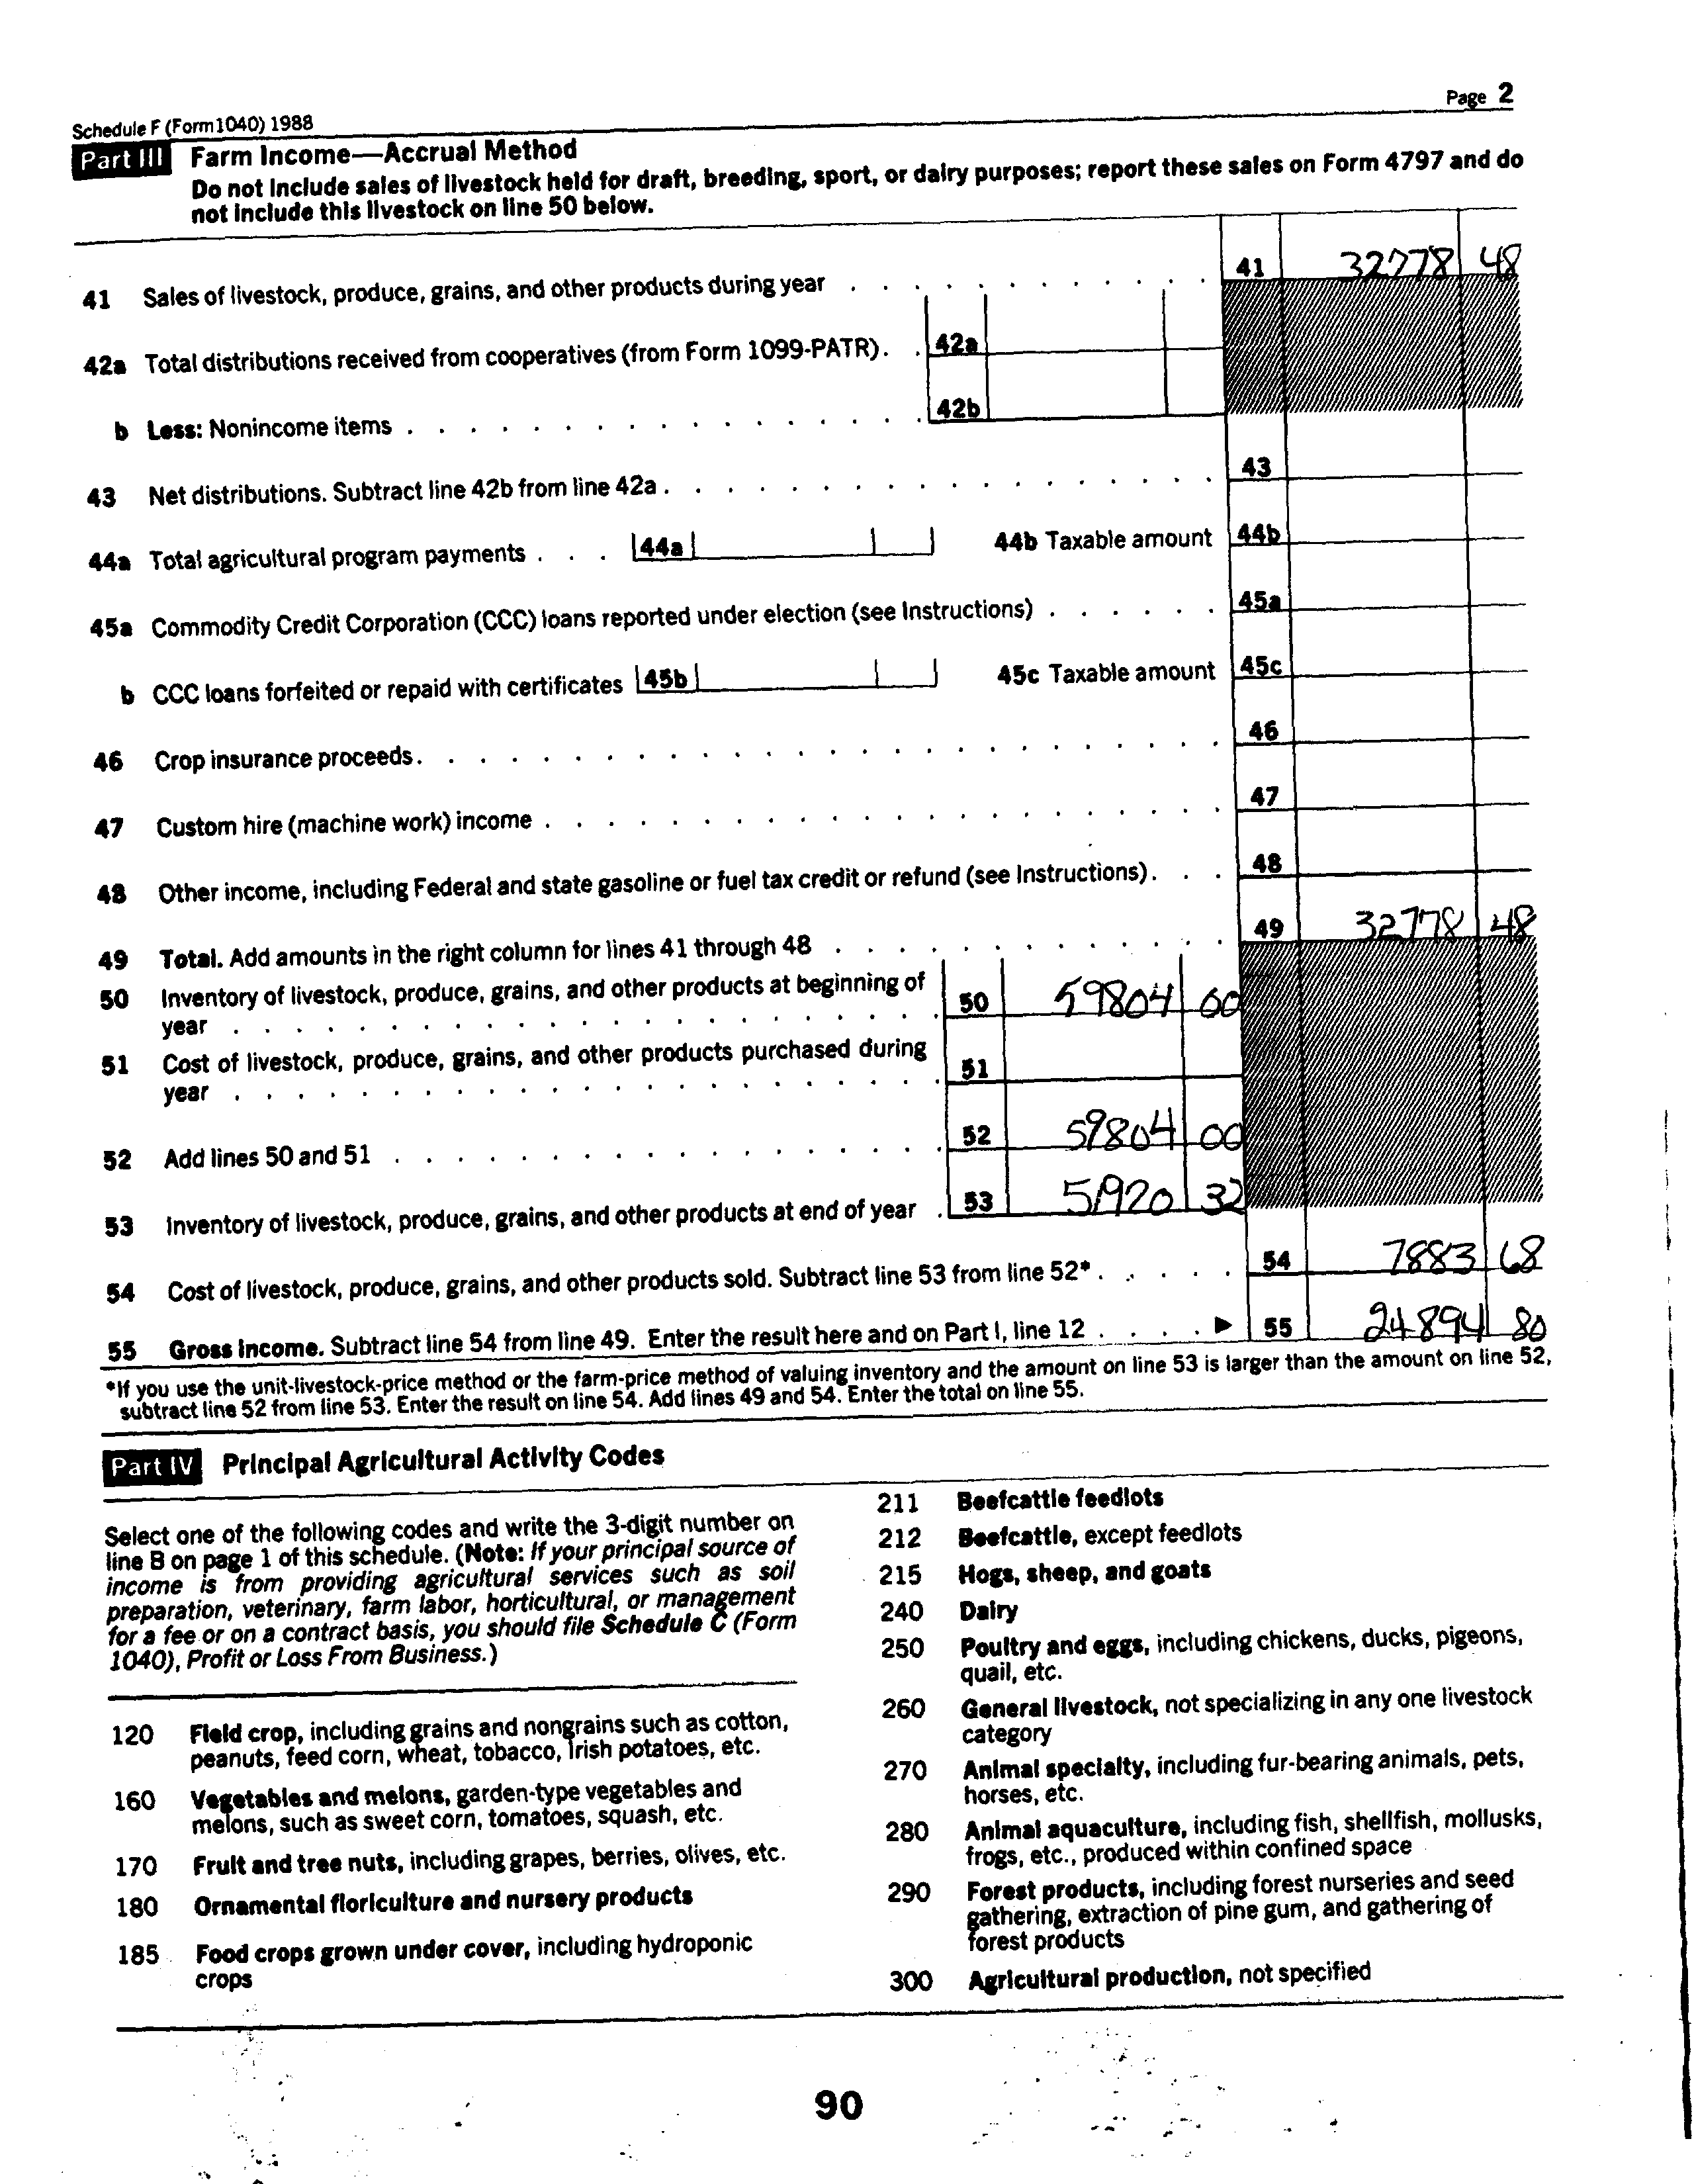 Schedule F (Form 1040) 1988 Page 2
Part III Farm Income—Accrual Method
Do not include sales of livestock held for draft, breeding, sport, or dairy purposes; report these sales on Form 4797 and do
not include this livestock on line 50 below.
41 Sales of livestock, produce, grains, and other products during year . . . . . . . . . . . . 41 32778 48
42a Total distributions received from cooperatives (from Form 1099-PATR). . 42a
b Less: Nonincome items . . . . . . . . . . . . . . . . . 42b
43 Net distributions. Subtract line 42b from line 42a . . . . . . . . . . . . . . . . . . 43
44a Total agricultural program payments . . . 44a 44b Taxable amount 44b
45a Commodity Credit Corporation (CCC) loans reported under election (see Instructions) . . . . . . 45a
b CCC loans forfeited or repaid with certificates 45b 45c Taxable amount 45c
46 Crop insurance proceeds. . . . . . . . . . . . . . . . . . . . . . . . . . 46
47 Custom hire (machine work) income . . . . . . . . . . . . . . . . . . . . . . 47
48 Other income, including Federal and state gasoline or fuel tax credit or refund (see Instructions). . . 48
49 Total. Add amounts in the right column for lines 41 through 48 . . . . . . . . . . . . . 49 32778 48
50 Inventory of livestock, produce, grains, and other products at beginning of
year . . . . . . . . . . . . . . . . . . . . . . . 50 59804 00
51 Cost of livestock, produce, grains, and other products purchased during
year . . . . . . . . . . . . . . . . . . . . . . . 51
52 Add lines 50 and 51 . . . . . . . . . . . . . . . . . . 52 59804 00
53 Inventory of livestock, produce, grains, and other products at end of year . 53 51920 32
54 Cost of livestock, produce, grains, and other products sold. Subtract line 53 from line 52* . . . . . 54 7883 68
55 Gross income. Subtract line 54 from line 49. Enter the result here and on Part I, line 12 . . . . ▶ 55 24894 80
*If you use the unit-livestock-price method or the farm-price method of valuing inventory and the amount on line 53 is larger than the amount on line 52,
subtract line 52 from line 53. Enter the result on line 54. Add lines 49 and 54. Enter the total on line 55.
Part IV Principal Agricultural Activity Codes
Select one of the following codes and write the 3-digit number on
line B on page 1 of this schedule. (Note: If your principal source of
income is from providing agricultural services such as soil
preparation, veterinary, farm labor, horticultural, or management
for a fee or on a contract basis, you should file Schedule C (Form
1040), Profit or Loss From Business.)
120 Field crop, including grains and nongrains such as cotton,
peanuts, feed corn, wheat, tobacco, Irish potatoes, etc.
160 Vegetables and melons, garden-type vegetables and
melons, such as sweet corn, tomatoes, squash, etc.
170 Fruit and tree nuts, including grapes, berries, olives, etc.
180 Ornamental floriculture and nursery products
185 Food crops grown under cover, including hydroponic
crops
211 Beefcattle feedlots
212 Beefcattle, except feedlots
215 Hogs, sheep, and goats
240 Dairy
250 Poultry and eggs, including chickens, ducks, pigeons,
quail, etc.
260 General livestock, not specializing in any one livestock
category
270 Animal specialty, including fur-bearing animals, pets,
horses, etc.
280 Animal aquaculture, including fish, shellfish, mollusks,
frogs, etc., produced within confined space
290 Forest products, including forest nurseries and seed
gathering, extraction of pine gum, and gathering of
forest products
300 Agricultural production, not specified
90